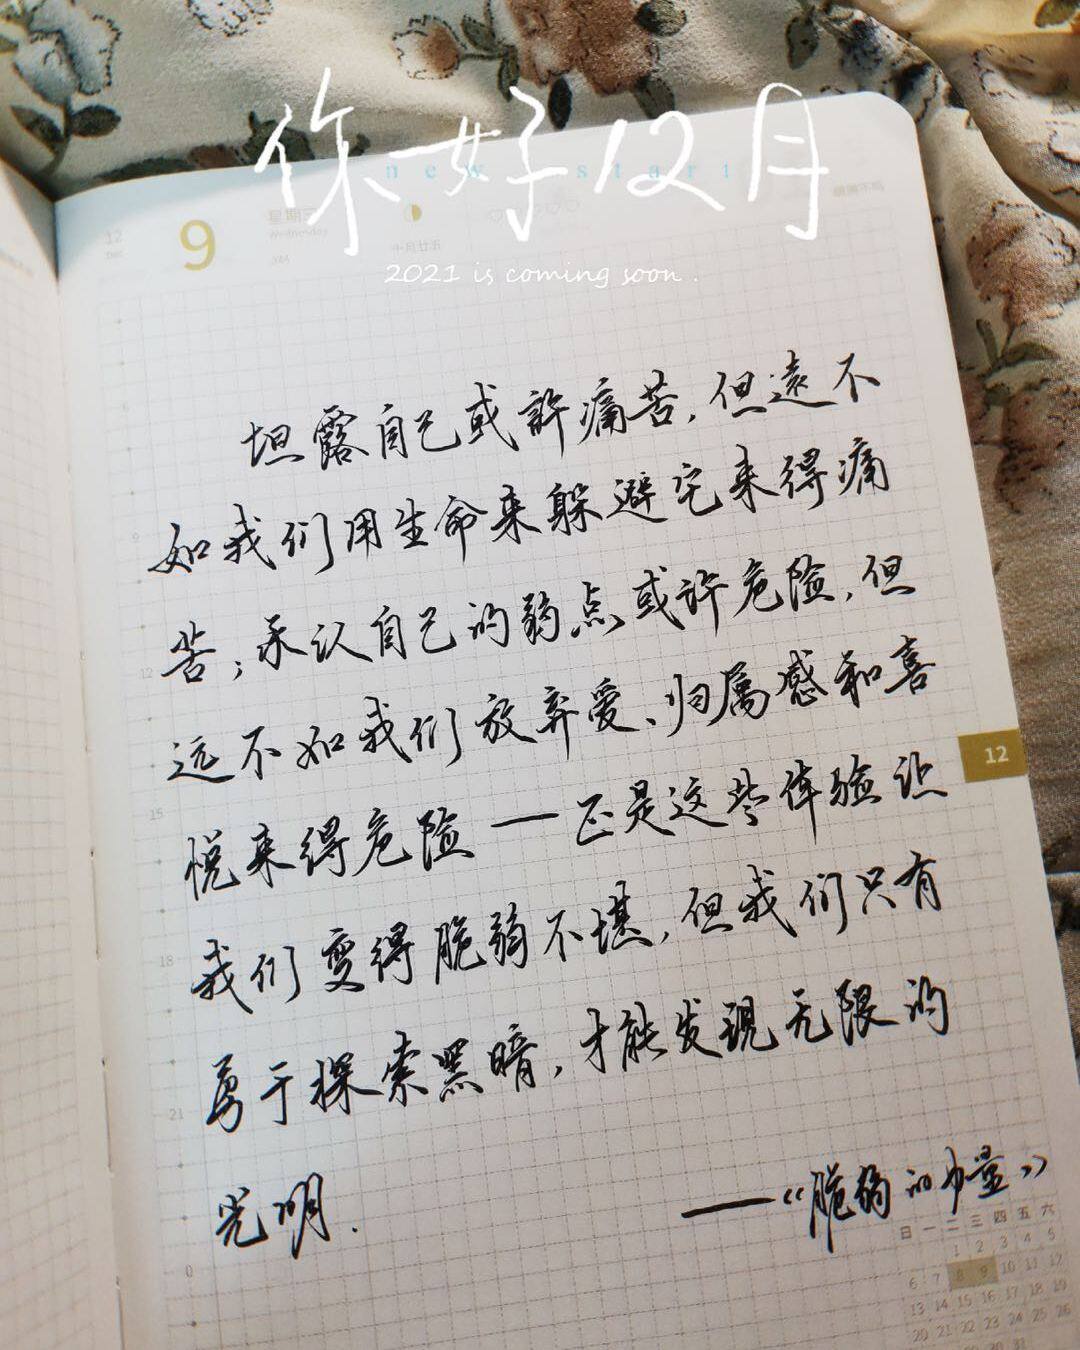 你好12月
new start
2021 is coming soon.
12
Dec
9
星期三
Wednesday
344
十月廿五
坦露自己或許痛苦,但遠不
如我们用生命来躲避它来得痛
苦;承认自己的弱点或许危险,但
远不如我们放弃爱、归属感和喜
悦来得危险——正是这些体验让
我们变得脆弱不堪,但我们只有
勇于探索黑暗,才能发現无限的
光明.
——《脆弱的力量》
12
9
12
15
18
21
0
日 一 二 三 四 五 六
1 2 3 4 5
6 7 8 9 10 11 12
13 14 15 16 17 18 19
20 21 22 23 24 25 26